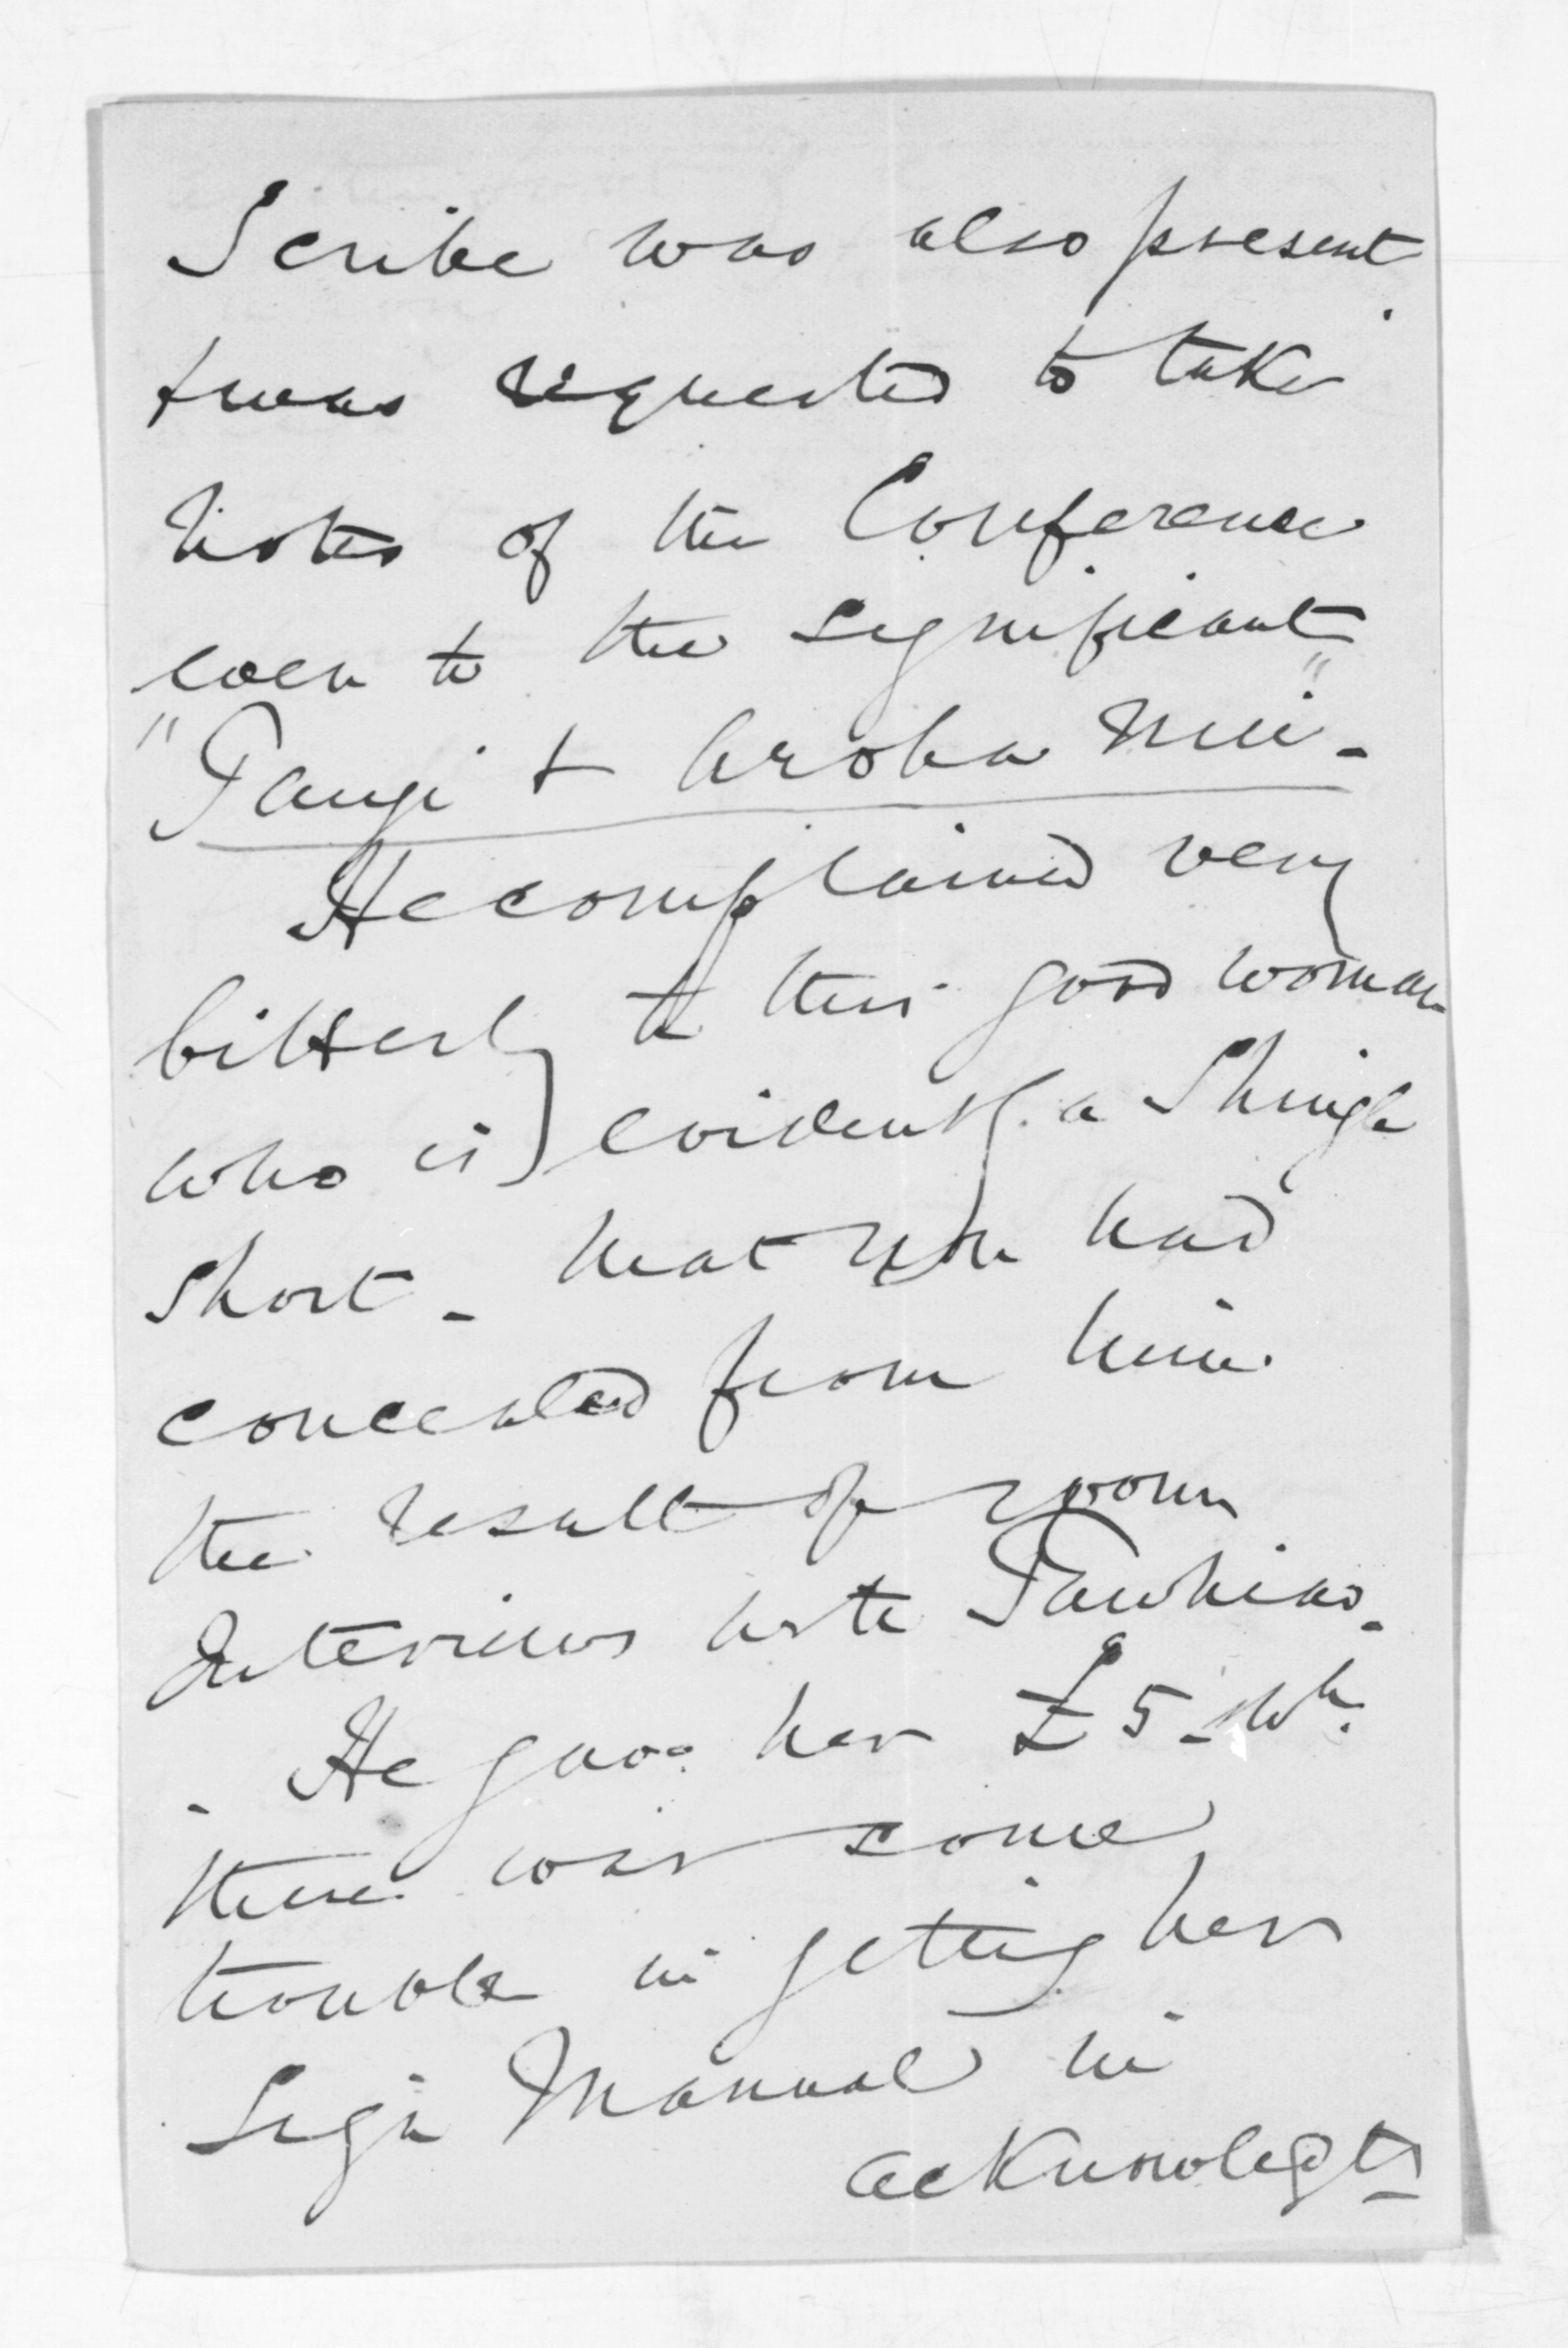 Scribe was also present
& was requested to take
notes of the Conference
even to the significant
"Tangi & Aroha Nui" -
He complained very
bitterly to this good woman
who is) evidently a Shingle
short - that you had
concealed from him
the result of your
Interviews with Tawhiao.
- He gave her £5 -
there was some
trouble in getting her
Sign Manual in
acknowledgt